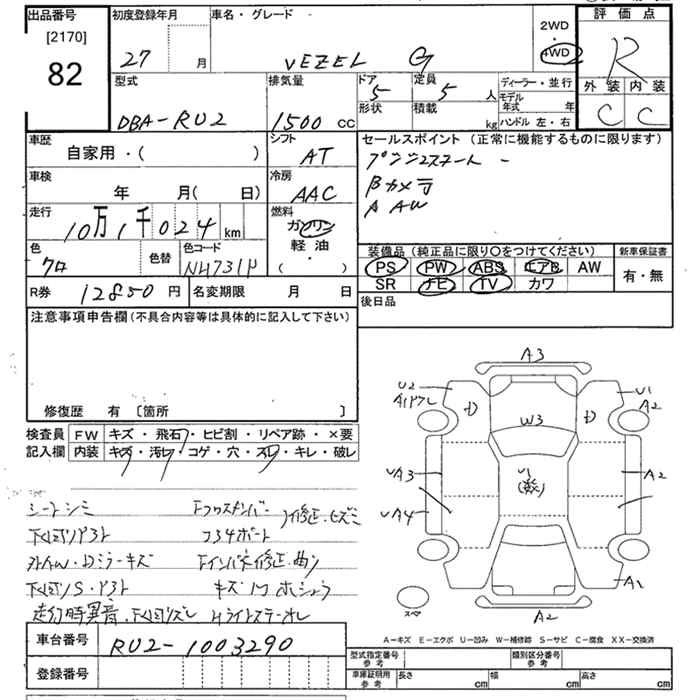 出品番号
[2170]
82
初度登録年月
27 月
車名・グレード
VEZEL G
2WD
・
4WD
評価点
R
外装 内装
C C
型式
DBA-RU2
排気量
1500 CC
ドア
5
形状
定員
5 人
積載
kg
ディーラー・並行
モデル
年式 年
ハンドル 左・右
車歴
自家用・( )
シフト
AT
車検
年 月( 日)
冷房
AAC
走行
10万1千024 km
燃料
ガソリン
軽油
( )
色
クロ
色替
色コード
NH731P
セールスポイント (正常に機能するものに限ります)
プッシュスタート
Bカメラ
A AW
装備品 (純正品に限り○をつけてください)
PS PW ABS エアB AW
SR ナビ TV カワ
新車保証書
有・無
R券 12850 円
名変期限 月 日
後日品
注意事項申告欄(不具合内容等は具体的に記入して下さい)
修復歴 有 〔箇所 〕
検査員
記入欄
FW キズ・飛石・ヒビ割・リペア跡・×要
内装 キズ・汚レ・コゲ・穴・スレ・キレ・破レ
シートシミ
Fクロスメンバー
修正
コーナーキズ
Fインパネ修正・曲り
走行時異音
Hライトステー
A3
U2
U1
A2
W3
UA3
UA4
A2
A1
A2
スペア
A-キズ E-エクボ U-凹み W-補修跡 S-サビ C-腐食 XX-交換済
車台番号
RU2-1003290
登録番号
型式指定番号
参考
類別区分番号
参考
車庫証明用
参考
長さ cm
幅 cm
高さ cm